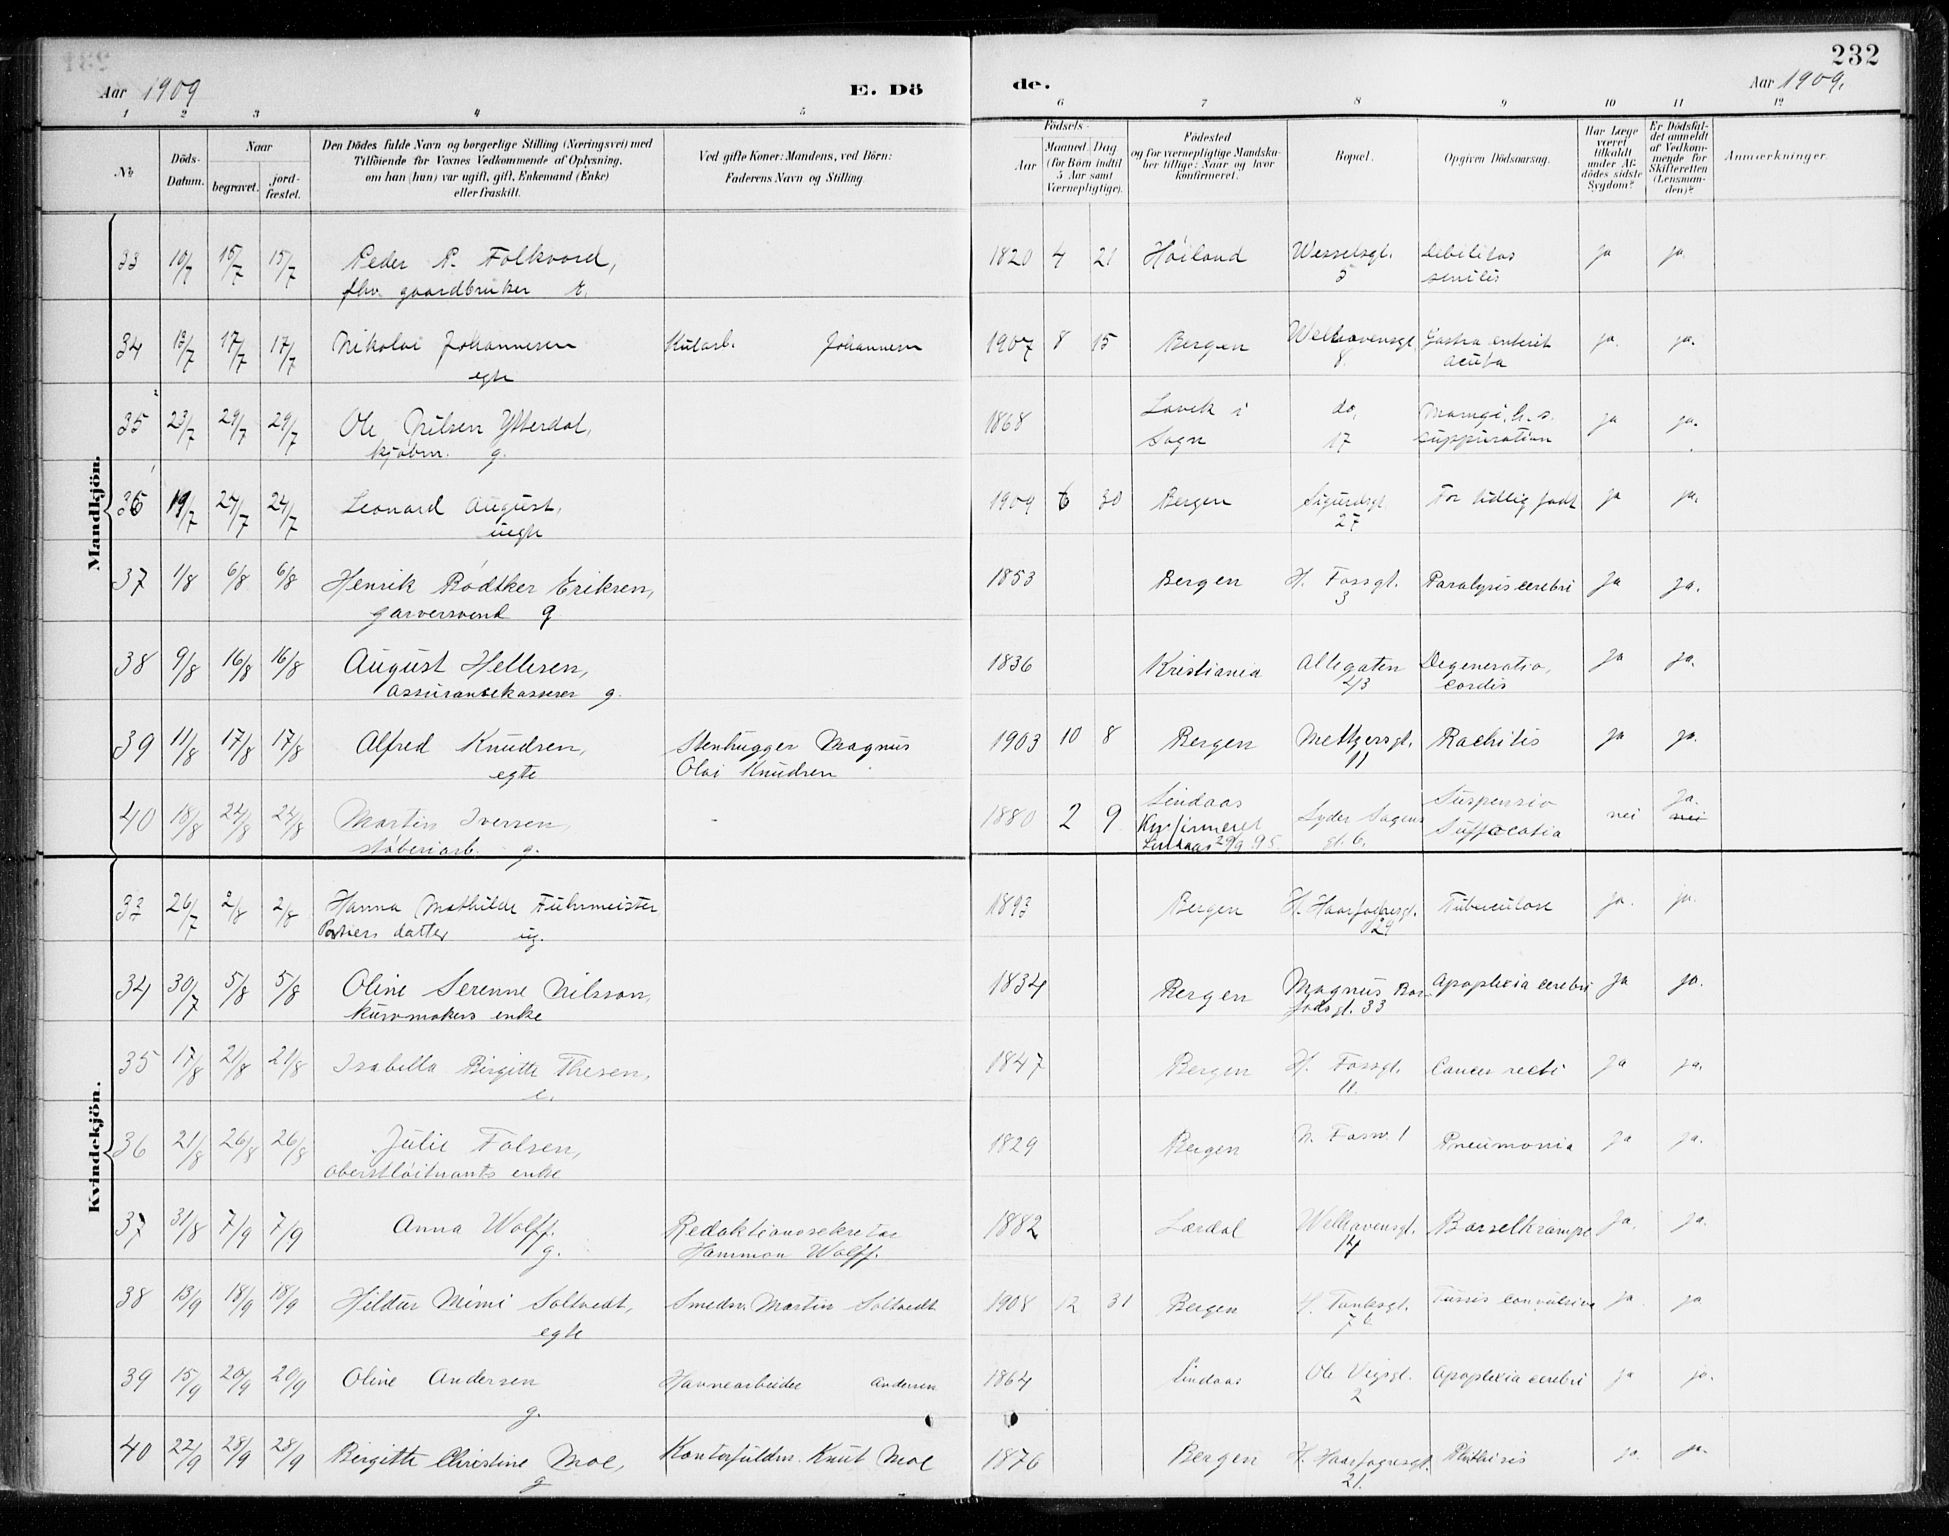 232
Aar 1909 E. Dö de. Aar 1909.
1 2 3 4 5 6 7 8 9 10 11 12
№ Döds-Datum. Naar begravet. jord-fæstet. Den Dödes fulde Navn og borgerlige Stilling (Næringsvei) med Tilföiende for Voxnes Vedkommende af Oplysning, om han (hun) var ugift, gift, Enkemand (Enke) eller fraskilt. Ved gifte Koner: Mandens, ved Börn: Faderens Navn og Stilling. Födsels- Aar Maaned. Dag (for Börn indtil 5 Aar samt Værnepligtige). Födested og for værnepligtige Mandskaber tillige: Naar og hvor konfirmeret. Bopæl. Opgiven Dödsaarsag. Har Læge været tilkaldt under Afdödes sidste Sygdom? Er Dödsfaldet anmeldt af Vedkommende for Skifteretten (Lensmanden)? Anmærkninger.
Mandkjön.
33 10/7 15/7 15/7 Peder P. Folkvord, 1820 4 21 Höiland Wesselsgt. debilitas ja ja
fhv. gaardbruker E. 5 senilis
34 13/7 17/7 17/7 Nikolai Johannesen Kularb. Johannesen 1907 8 15 Bergen Welhavensgt. Gastro enterit ja. ja.
egte 8. acuta
35 23/7 29/7 29/7 Ole Nilsen Ytterdal, 1868 Lavik i do, ja ja.
kjøbm. g. Sogn 17 suppuration
36 19/7 24/7 24/7 Leonard August, 1909 6 30 Bergen Sigurdsgt. For tidlig født ja ja.
uegte 27
37 1/8 6/8 6/8 Henrik Bödtker Eriksen, 1853 Bergen H. Fossgt. Paralysis cerebri ja ja.
garversvend g 3
38 9/8 16/8 16/8 August Hellesen, 1836 Kristiania Allegaten Degeneratio, ja ja.
Assurancekasserer g. 43 cordis
39 11/8 17/8 17/8 Alfred Knudsen, Stenhugger Magnus 1903 10 8 Bergen Meltzersgt. Rachitis ja ja.
egte Olai Knudsen 11
40 18/8 24/8 24/8 Martin Iversen, 1880 2 9 Lindaas Lyder Sagens Suspensio nei ja. nei
støberiarb. g. Konfirmeret Lindaas 29/9 95 gt. 6. Suffocatia
Kvindekjön.
33 26/7 2/8 2/8 Hanna Mathilde Fuhrmeister 1893 Bergen H. Haarfagresgt. Tuberculose ja. ja.
Portiers datter ug. 29
34 30/7 5/8 5/8 Oline Serenne Nilsson, 1834 Bergen Magnus Bar- Apoplexia cerebri ja ja.
kurvmakers enke fodsgt. 33
35 17/8 21/8 21/8 Isabella Birgitte Thesen, 1847 Bergen H. Fossgt. Cancer recti ja ja.
e. 11.
36 21/8 26/8 26/8 Julie Falsen, 1829 Bergen 1 Pneumonia ja ja.
oberstløitnants enke
37 31/8 7/9 7/9 Anna Wolff. Redaktionssekretær 1882 Lærdal Welhavensgt. Barselkrampe ja. ja.
g. Hammon Wolff. 14
38 13/9 18/9 18/9 Hildur Mimi Soltvedt, Smedm. Martin Soltvedt 1908 12 31 Bergen H. Tanksgt. Tussis convulsiva ja ja
egte
39 15/9 20/9 20/9 Oline Andersen Havnearbeider Andersen 1864 Lindaas Ole Vigsgt. Apoplexia cerebri ja ja.
g. 2
40 22/9 28/9 28/9 Birgitte Christine Moe, Kontorfuldm. Knut Moe 1876 Bergen H. Haarfagresgt. Phthisis ja. ja.
g 21.